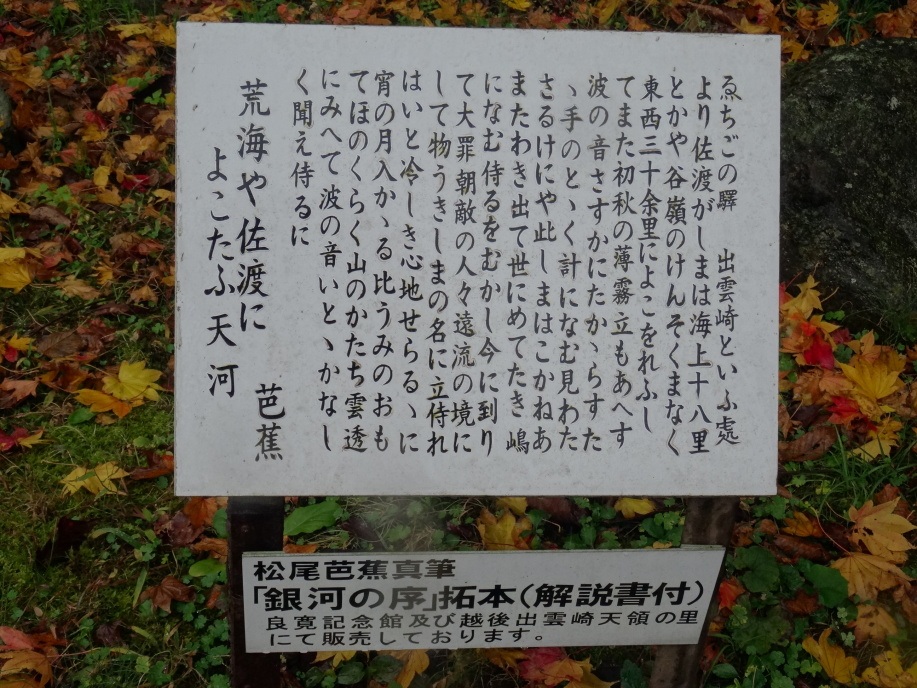 ゑちごの驛　出雲崎といふ處
より佐渡がしまは海上十八里
とかや谷嶺のけんそくまなく
東西三十余里によこをれふし
てまた初秋の薄霧立もあへす
波の音さすかにたかゝらすたた
ゝ手のとゝく計になむ見わた
さるけにや此しまはこかねあ
またわき出て世にめてたき嶋
になむ侍るをむかし今に到り
て大罪朝敵の人々遠流の境に
して物うきしまの名に立侍れ
はいと冷しき心地せらるゝに
宵の月入かゝる比うみのおも
てほのくらく山のかたち雲透
にみへて波の音いとゝかなし
く聞え侍るに
荒海や佐渡に　芭蕉
よこたふ天河
松尾芭蕉真筆
「銀河の序」拓本(解説書付)
良寛記念館及び越後出雲崎天領の里
にて販売しております。